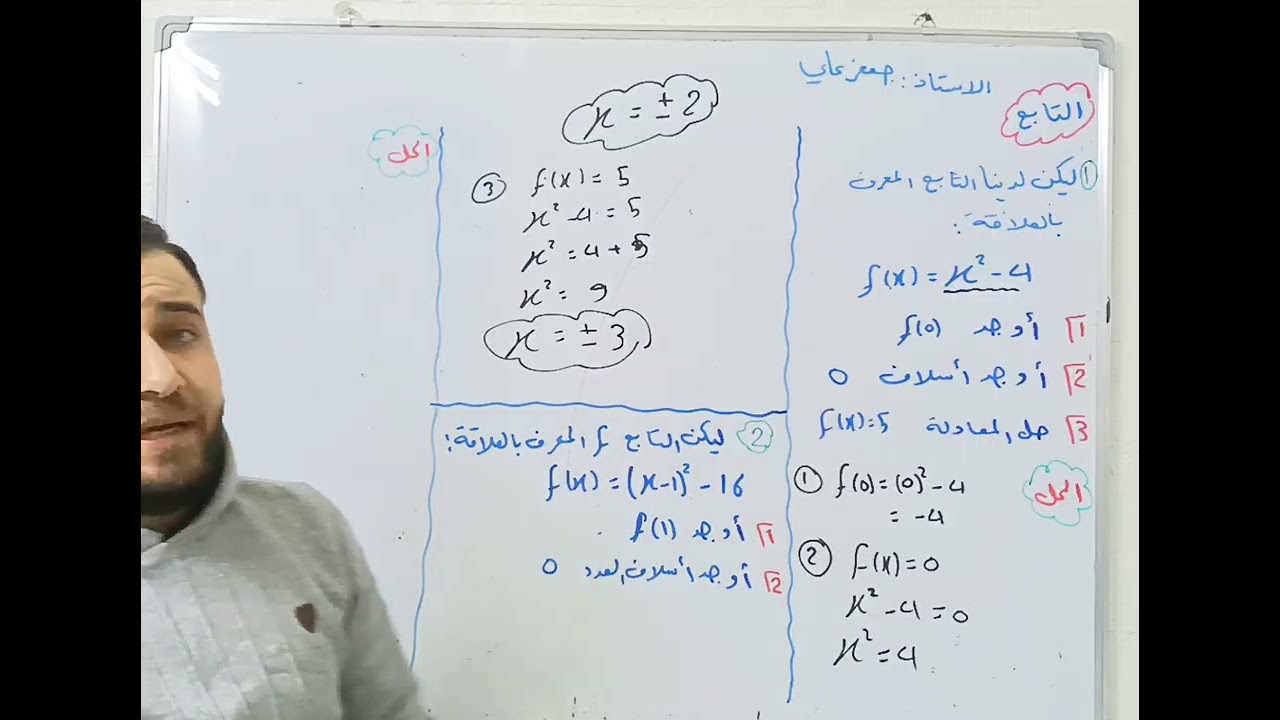 الاستاذ: جعفر علي
التابع
① ليكن لدينا التابع المعرف
بالعلاقة:
f(x) = x² - 4
1 أوجد f(0)
2 أوجد أسلاف 0
3 حل المعادلة f(x)=5
الحل
① f(0) = (0)² - 4
= -4
② f(x) = 0
x² - 4 = 0
x² = 4
x = ± 2
③ f(x) = 5
x² - 4 = 5
x² = 4 + 5
x² = 9
x = ± 3
② ليكن التابع f المعرف بالعلاقة:
f(x) = (x-1)² - 16
1 أوجد f(1)
2 أوجد أسلاف العدد 0
الحل